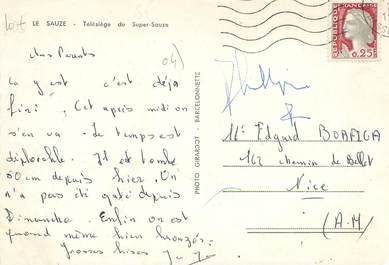 LE SAUZE - Télésiège du Super-Sauze
04)
Mes Parents
Ca y est c'est déjà
fini. Cet après midi on
s'en va. Le temps est
déplorable. Il est tombé
50 cm depuis hier. On
n'a pas été gaté depuis
Dimanche. Enfin on est
quand même bien bronzés.
Grosses bises
PHOTO GIRARDOT - BARCELONNETTE
REPUBLIQUE FRANCAISE
0,25
Mr Edgard BORFIGA
162 chemin de Bellet
Nice
(A-M)